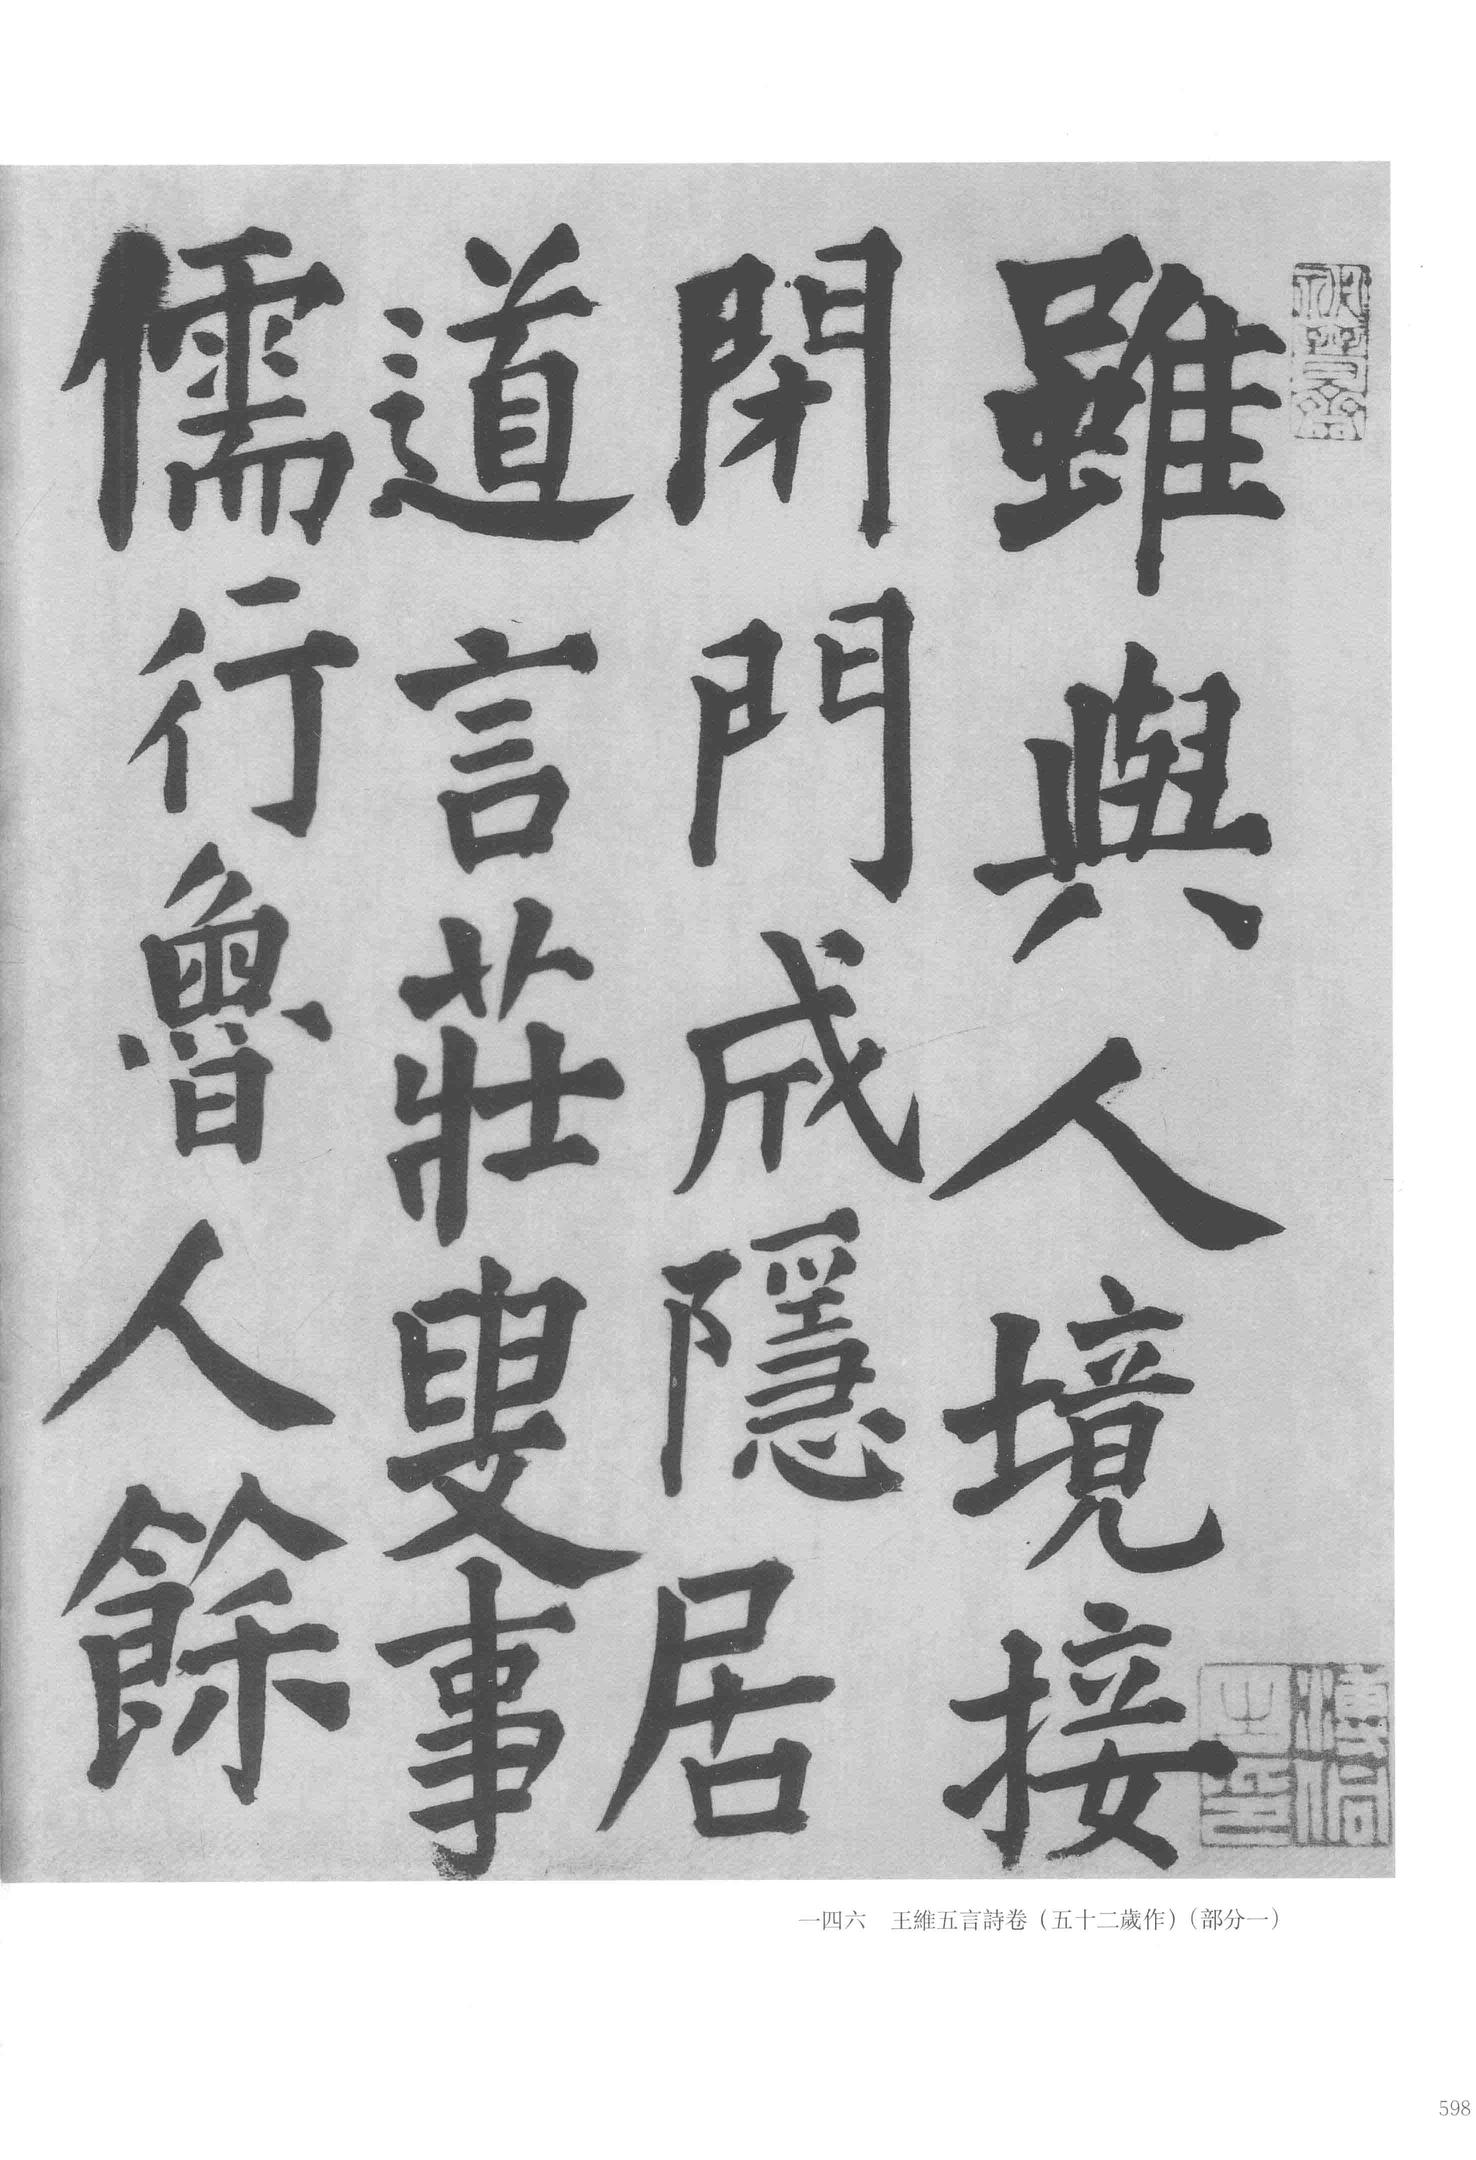 雖與人境接
閉門成隱居
道言莊叟事
儒行魯人餘
一四六　王維五言詩卷（五十二歲作）（部分一）
598